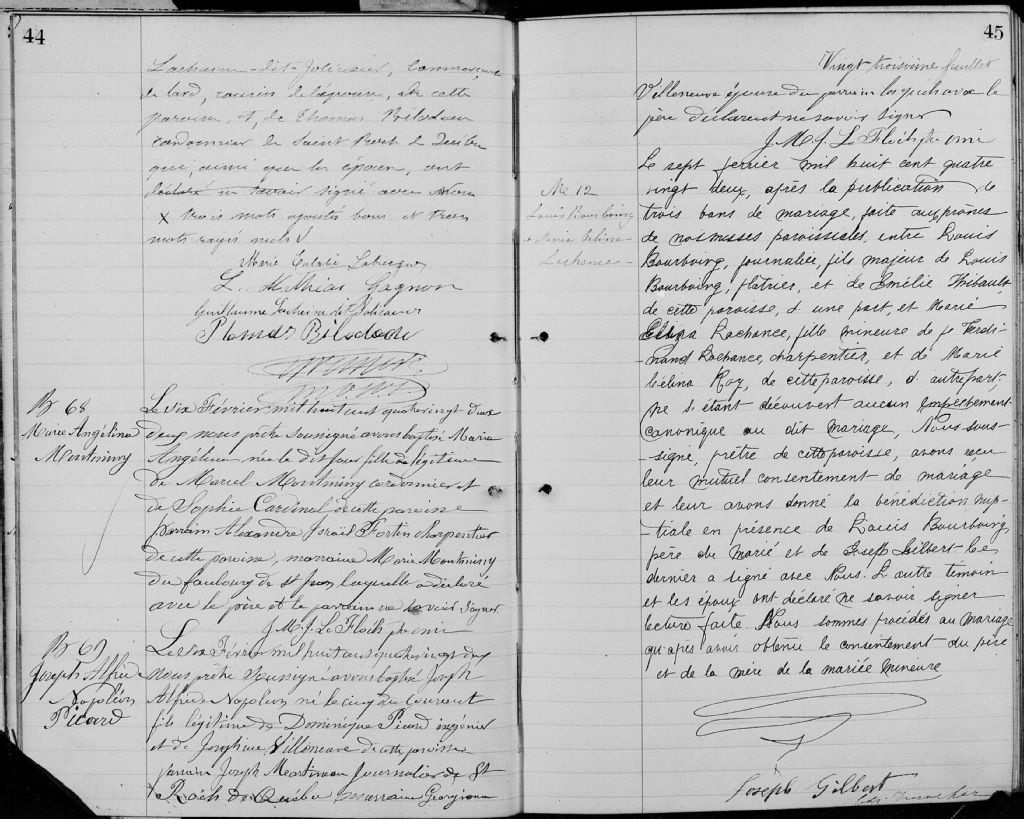 44
Lachaine dit Jolicoeur, commerçant
de lard, cousin de l'épouse, de cette
paroisse, et, de Thomas Bilodeau
cordonnier de Saint Roch de Québec
qui, ainsi que les époux, ont
signé avec nous
X trois mots ajoutés bons et trois
mots rayés nuls
Marie Eulalie Labecque
L. Mathias Gagnon
Guillaume
Thomas Bilodeau
B 68
Marie Angélina
Montminy
Le six Février mil huit cent quatre vingt deux
deux nous prêtre soussigné avons baptisé Marie
Angélina née le dit jour fille légitime
de Marcel Montminy cordonnier et
de Sophie Cardinal de cette paroisse
parrain Alexandre Joraël Fortin charpentier
de cette paroisse, marraine Marie Montminy
du faubourg de St Jean laquelle a déclaré
avec le père et le parrain ne savoir signer
J. M. J. Le Floch ptre omi
B 69
Joseph Alfred
Napoléon
Picard
Le six Février mil huit cent quatre vingt deux
Nous prêtre soussigné avons baptisé Joseph
Alfred Napoléon né le cinq du courant
fils légitime de Dominique Picard ingénieur
et de Josephine Villeneuve de cette paroisse
parrain Joseph Martineau Journalier de St
Roch de Québec marraine Georgiana
45
Vingt troisième feuillet
Villeneuve épouse du parrain lesquels avec le
père déclarent ne savoir signer
J. M. J. Le Floch ptre omi
M 12
Louis Bourbourg
& Marie Celina
Lachance
Le sept ferrier mil huit cent quatre
vingt deux, après la publication de
trois bans de mariage, faite aux prônes
de nos messes paroissiales, entre Louis
Bourbourg, journalier, fils majeur de Louis
Bourbourg, platrier, et de Emélie Thibault,
de cette paroisse, d'une part, et Marie
Eliza Lachance, fille mineure de Ferdi-
nand Lachance, charpentier, et de Marie
Célina Roy, de cette paroisse, d'autre part-
ne s'étant découvert aucun empêchement
canonique au dit mariage, Nous sous-
-signé, prêtre de cette paroisse, avons reçu
leur mutuel consentement de mariage
et leur avons donné la bénédiction nup-
-tiale en présence de Louis Bourbourg
père du marié et de Joseph Gilbert - Ce
dernier a signé avec Nous. L'autre temoin
et les époux ont déclaré ne savoir signer
lecture faite. Nous sommes procédés au mariage
qu'après avoir obtenu le consentement du père
et de la mère de la mariée mineure
Joseph Gilbert